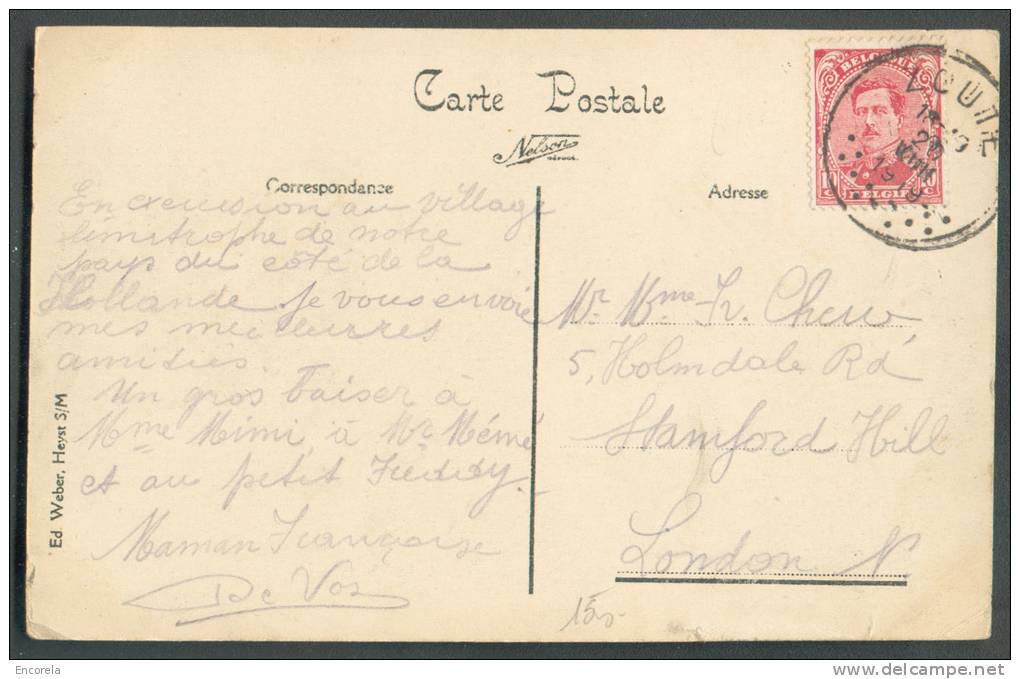 Carte Postale
Nelson
Correspondance
Adresse
BELGIQUE
BELGIË
1919
En excursion au village
limitrophe de notre
pays du côté de la
Hollande je vous envoie
mes meilleures
amitiés.
Un gros baiser à
Mme Mimi à Mr Mémé
et au petit
Maman Françoise
De Vos
Mr. Mme
5, Holmdale Rd
Stamford Hill
London N
150
Ed. Weber, Heyst S/M
Encorela
www.delcampe.net